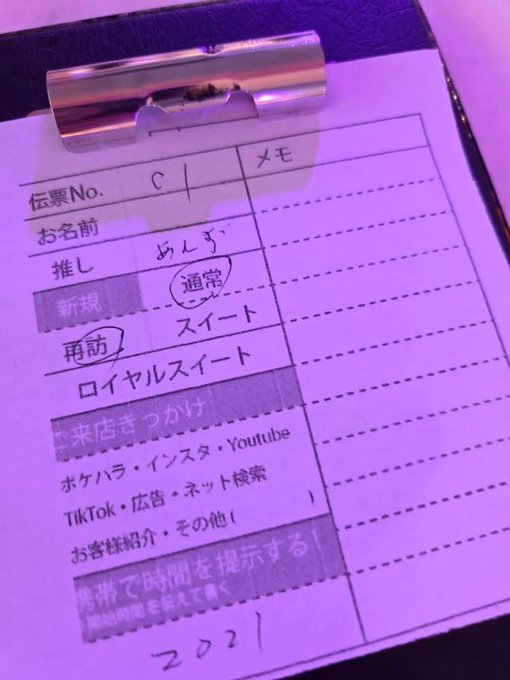 伝票No. C1
メモ
お名前
推し めんず
新規 通常
再訪 スイート
ロイヤルスイート
ご来店きっかけ
ポケハラ・インスタ・Youtube
TikTok・広告・ネット検索
お客様紹介・その他( )
携帯で時間を提示する!
開始時間を伝えて書く
2021